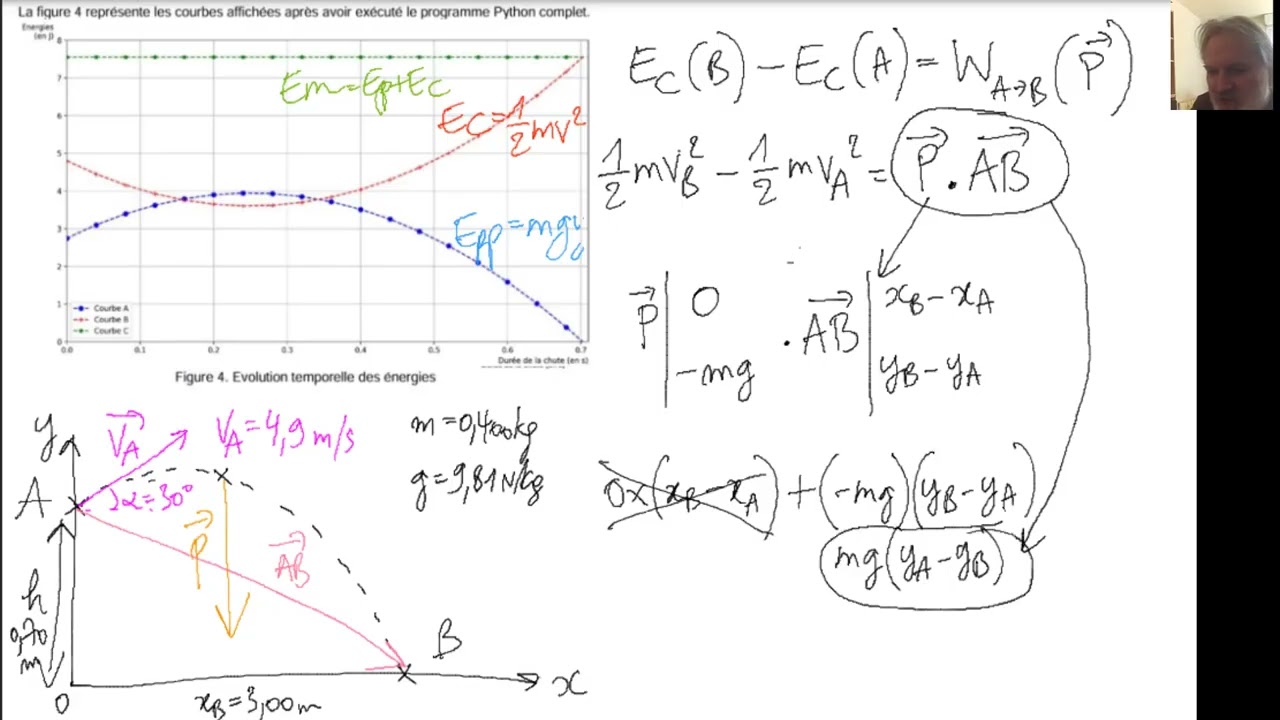 La figure 4 représente les courbes affichées après avoir exécuté le programme Python complet.
Energies
(en J)
8
7
6
5
4
3
2
1
0
0.0 0.1 0.2 0.3 0.4 0.5 0.6 0.7
Durée de la chute (en s)
Courbe A
Courbe B
Courbe C
Em=Ep+Ec
Ec=1/2mv²
Epp=mgy
Figure 4. Evolution temporelle des énergies
y
V⃗A
VA=4,9 m/s
m=0,400kg
g=9,81N/kg
A
α=30°
P⃗
AB⃗
h
0,70
m
B
0
xB=3,00m
x
EC(B)-EC(A)=WA→B(P⃗)
1/2mVB²-1/2mVA²=P⃗.AB⃗
P⃗ | 0 . AB⃗ | xB-xA
-mg yB-yA
0x(xB-xA)+(-mg)(yB-yA)
mg(yA-yB)